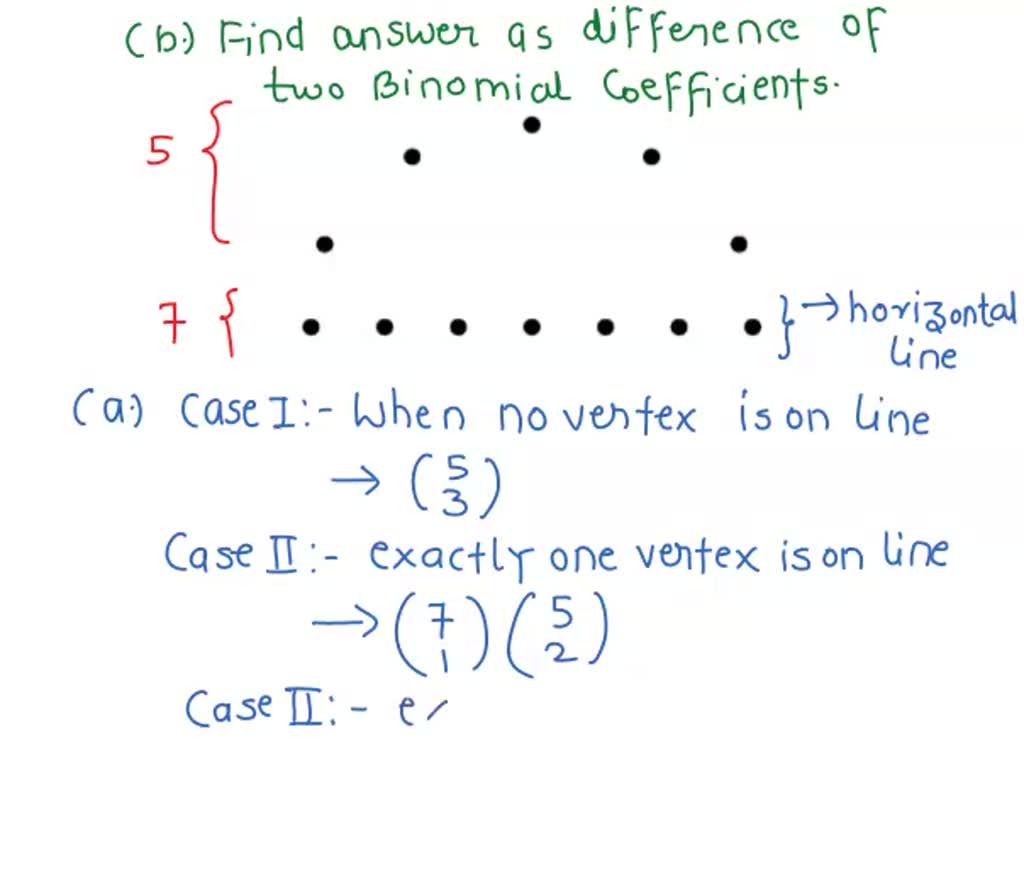 (b.) Find answer as difference of
two Binomial Coefficients.
5 {
7 { } → horizontal
line
(a.) Case I:- When no vertex is on line
→ (5 3)
Case II:- exactly one vertex is on line
→ (7 1) (5 2)
Case II:- e